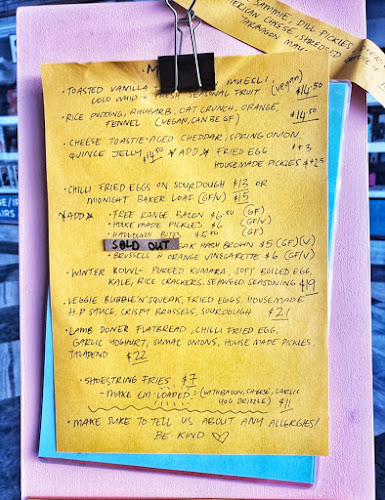 SAMMIE, DILL PICKLES,
CHEESE, SHREDDED
TARRAGON MAYO
M
• TOASTED VANILLA MUESLI,
COCO WHIP + FRESH SEASONAL FRUIT (VEGAN) $14.50
• RICE PUDDING, RHUBARB, OAT CRUNCH, ORANGE,
FENNEL (VEGAN, CAN BE GF) $14.50
• CHEESE TOASTIE - AGED CHEDDAR, SPRING ONION,
QUINCE JELLY $14.50 *ADD* FRIED EGG +3
HOUSEMADE PICKLES $+2.5
• CHILLI FRIED EGGS ON SOURDOUGH $13 OR
MIDNIGHT BAKER LOAF (GF/V) $15
*ADD* • FREE RANGE BACON $6.50 (GF)
• HOUSE MADE PICKLES $6 (GF/V)
• HALLOUMI BITES (GF)
SOLD OUT HASH BROWN $5 (GF)(V)
• BRUSSELS N ORANGE VINEGARETTE $6 (GF/V)
• WINTER BOWL - PUREED KUMARA, SOFT BOILED EGG,
KALE, RICE CRACKERS, SEAWEED SEASONING $19
• VEGGIE BUBBLE 'N' SQUEAK, FRIED EGGS, HOUSEMADE
H.P SAUCE, CRISPY BRUSSELS, SOURDOUGH $21
• LAMB DONER FLATBREAD, CHILLI FRIED EGG,
GARLIC YOGHURT, SUMAC ONIONS, HOUSE MADE PICKLES,
JALAPENO $22
• SHOESTRING FRIES $7
- MAKE EM LOADED? (WITH BACON, CHEESE, GARLIC
AOG DRIZZLE) $11
• MAKE SURE TO TELL US ABOUT ANY ALLERGIES!
BE KIND ♡